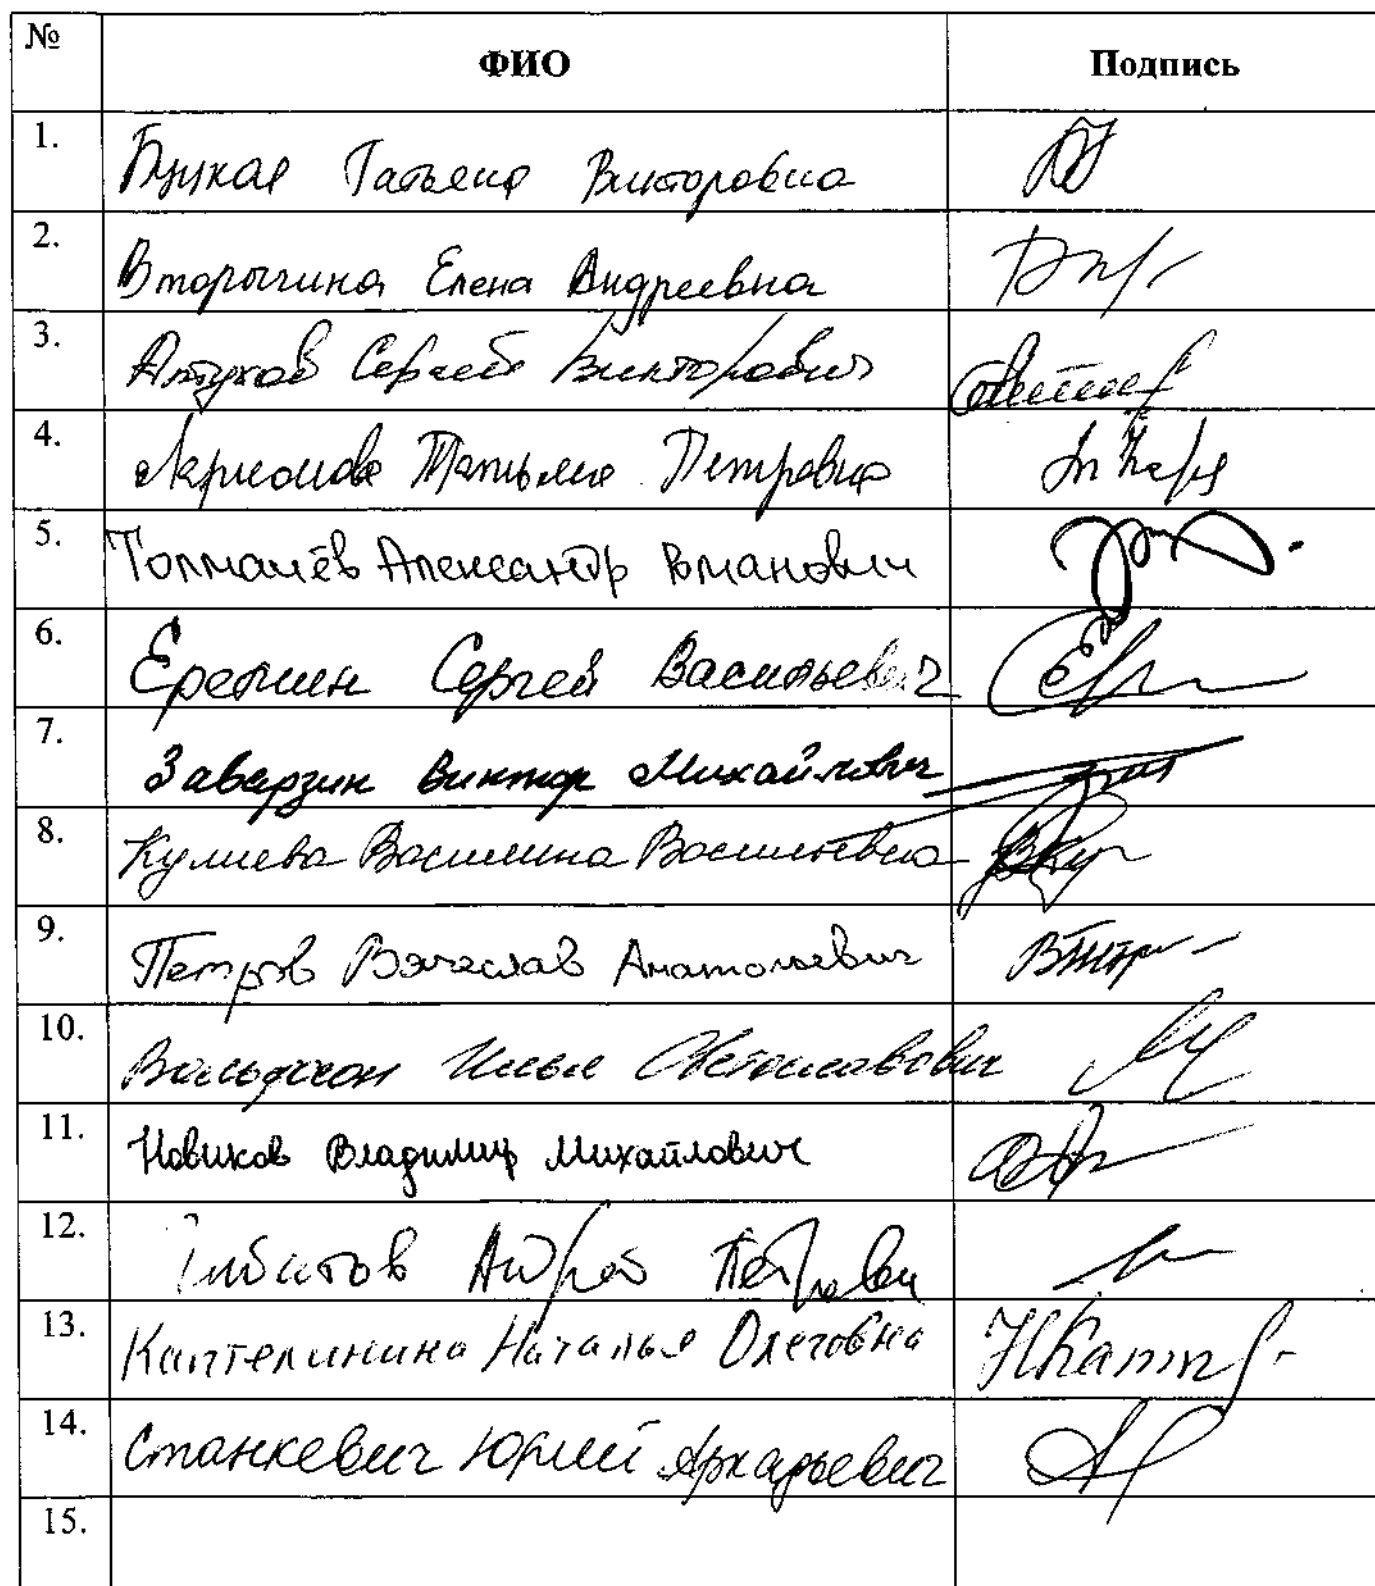 № ФИО Подпись
1. Буцкая Татьяна Викторовна
2. Вторыгина Елена Андреевна
3. Алтухов Сергей Викторович
4. Ларионова Татьяна Петровна
5. Толмачёв Александр Романович
6. Еремин Сергей Васильевич
7. Заварзин Виктор Михайлович
8. Кулиева Василина Васильевна
9. Петров Вячеслав Анатольевич
10. Вольфсон Илья Светославович
11. Новиков Владимир Михайлович
12. Андрей Петрович
13. Каптелинина Наталья Олеговна
14. Станкевич Юрий Аркадьевич
15.